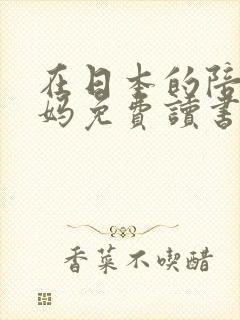 在日本的陪
妈免費讀書
香菜不喫醋